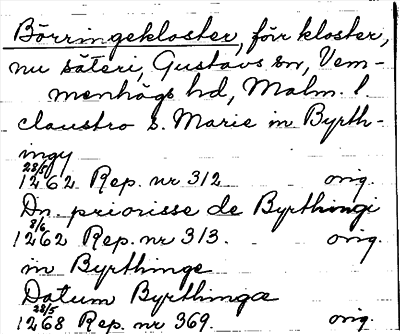 Börringekloster, förr kloster,
nu säteri, Gustavs sn, Vem-
menhögs hd, Malm. l.
claustro s. Marie in Byrth-
ingy
28/5 1262 Rep. nr 312 orig.
Dn. priorisse de Byrthingi
8/6 1262 Rep. nr 313. orig.
in Byrthinge
Datum Byrthingæ
28/5 1268 Rep. nr 369. orig.